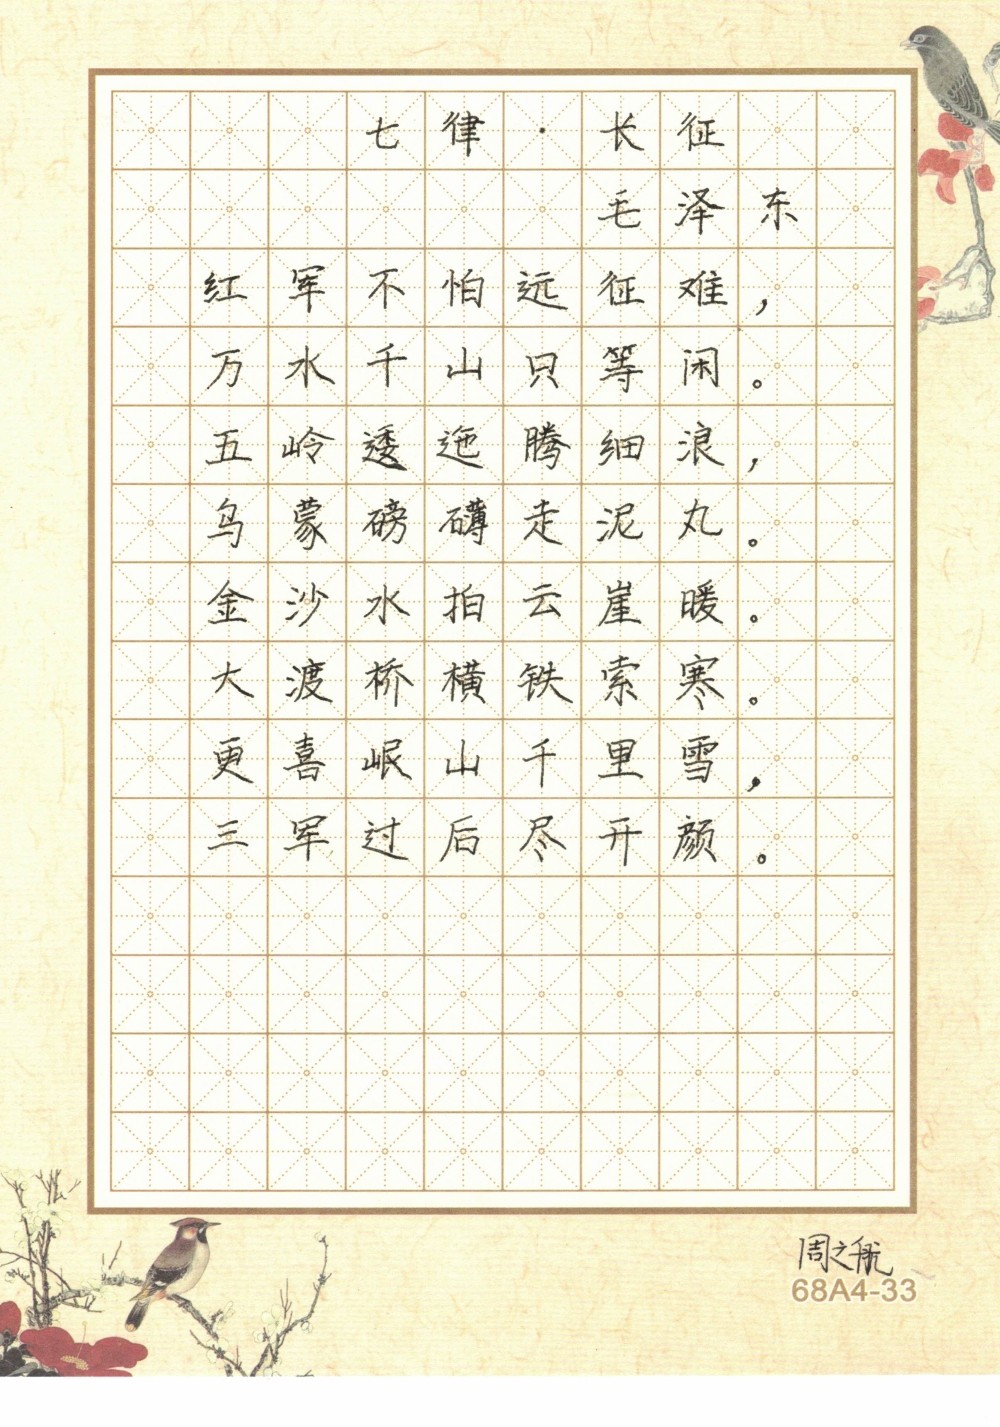 七律·长征
毛泽东
红军不怕远征难，
万水千山只等闲。
五岭逶迤腾细浪，
乌蒙磅礴走泥丸。
金沙水拍云崖暖。
大渡桥横铁索寒。
更喜岷山千里雪，
三军过后尽开颜。
周之航
68A4-33